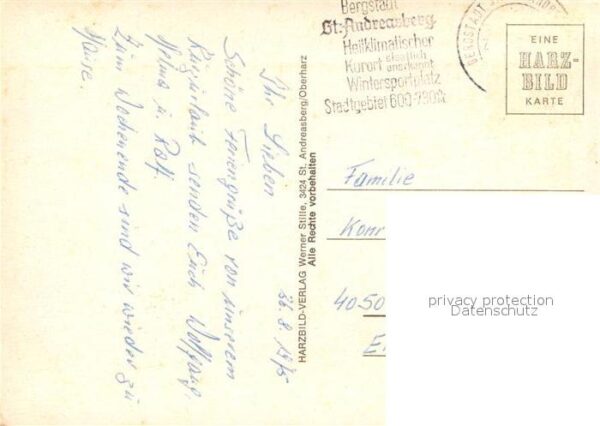 Bergstadt
St. Andreasberg
Heilklimatischer
Kurort staatlich anerkannt
Wintersportplatz
Stadtgebiet 600-900m
BERGSTADT
EINE
HARZ-
BILD
KARTE
26.8.1975
Ihr Lieben
Schöne Feriengrüße von unserem
Kurzurlaub senden Euch Wolfgang,
Helma u. Ralf.
Zum Wochenende sind wir wieder zu
Hause.
HARZBILD-VERLAG Werner Stille, 3424 St. Andreasberg/Oberharz
Alle Rechte vorbehalten
Familie
Konr
4050
E
privacy protection
Datenschutz